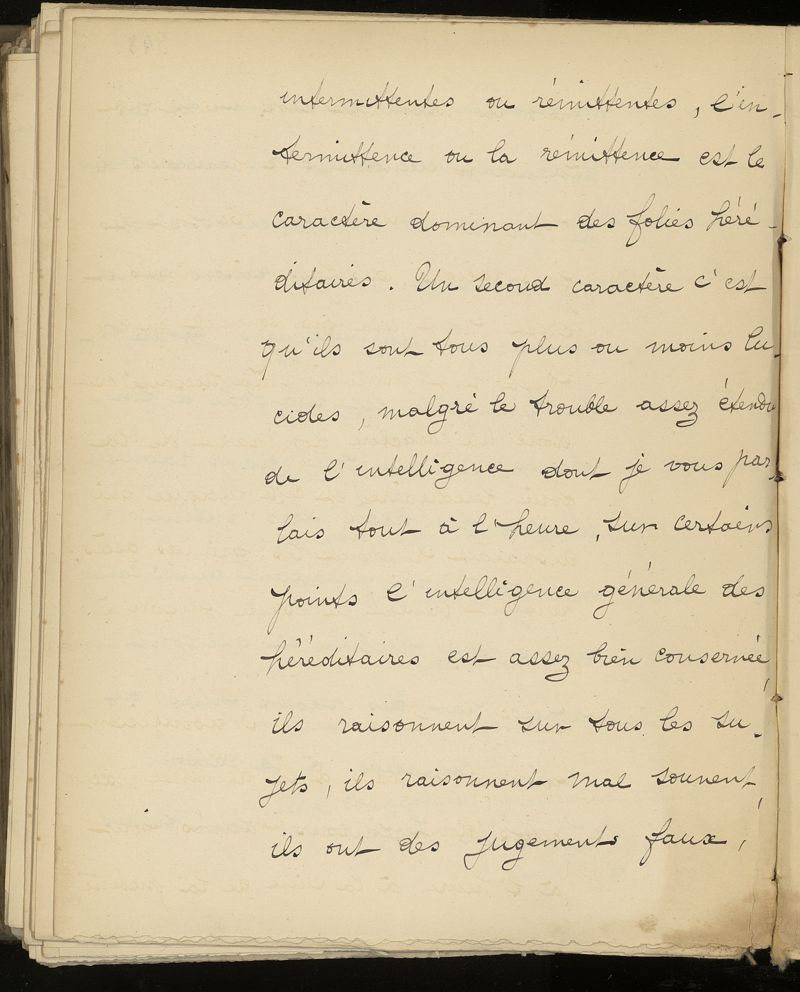 intermittentes ou rémittentes, l'in-
termittence ou la rémittence est le
caractère dominant des folies héré-
ditaires. Un second caractère c'est
qu'ils sont tous plus ou moins lu-
cides, malgré le trouble assez étendu
de l'intelligence dont je vous par-
lais tout à l'heure, sur certains
points l'intelligence générale des
héréditaires est assez bien conservée,
ils raisonnent sur tous les su-
jets, ils raisonnent mal souvent,
ils ont des jugements faux,